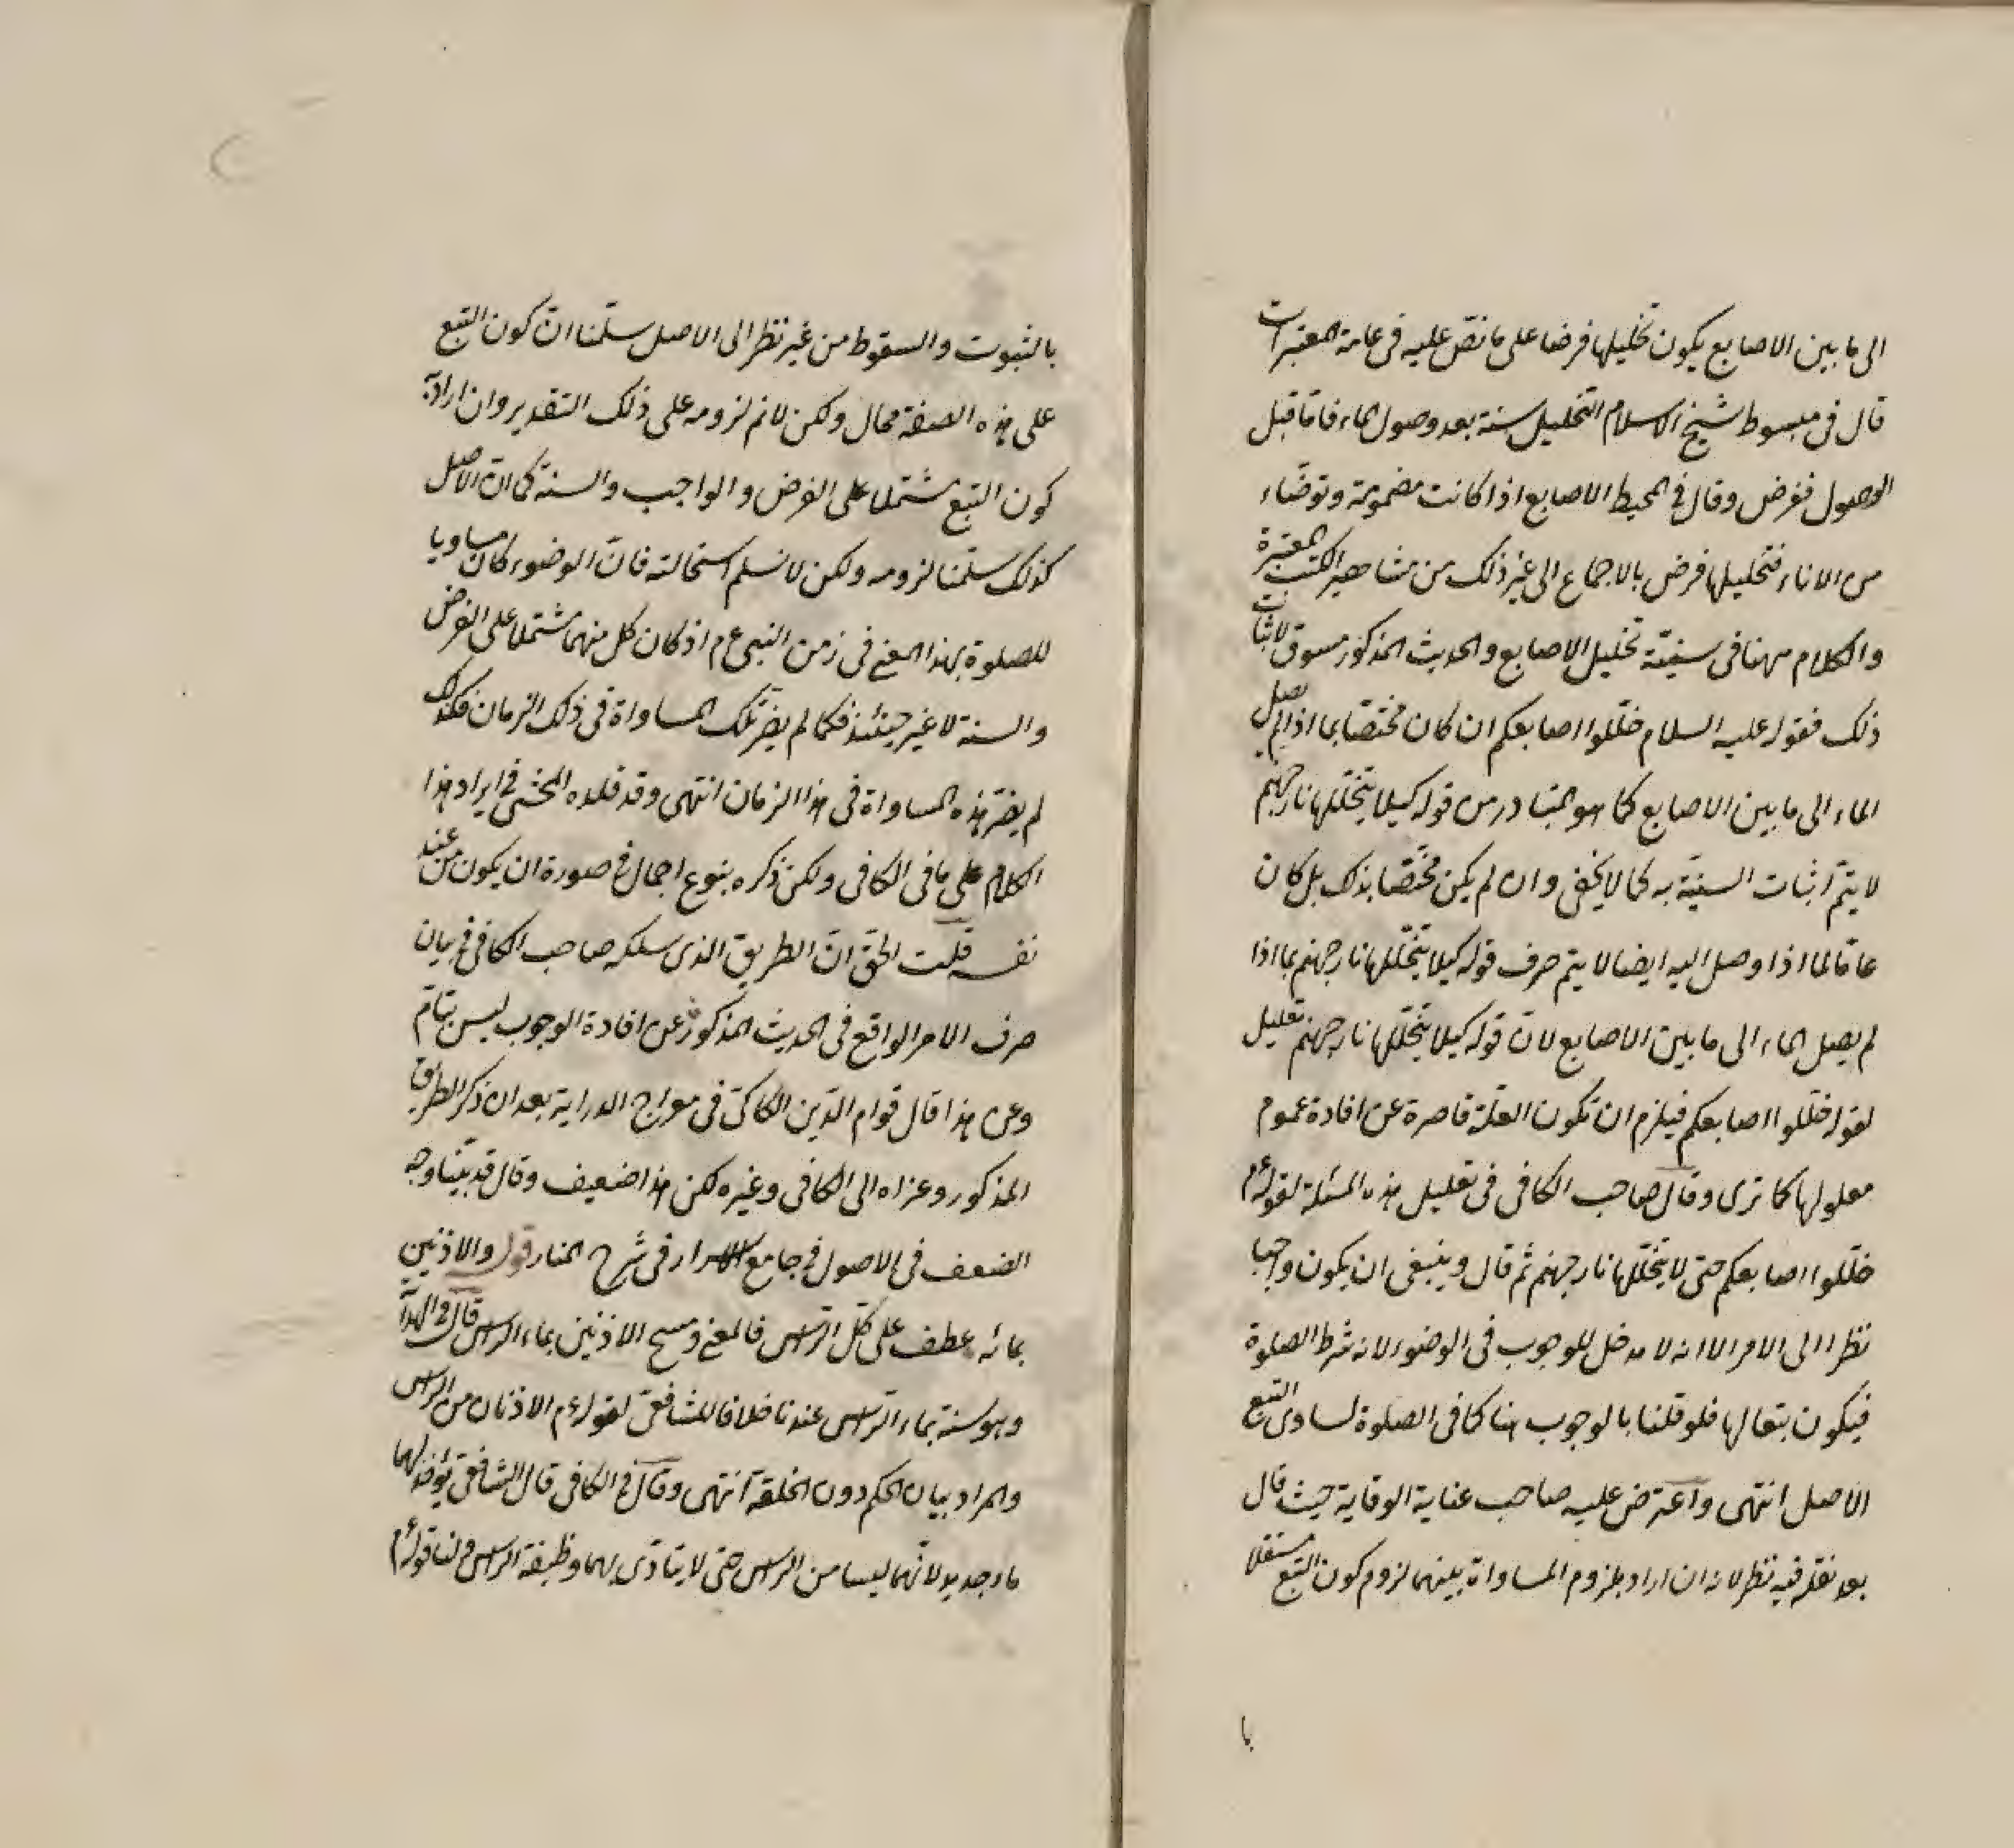 الى ما بين الاصابع يكون تخليلها فرضا على ما نصّ عليه فى عامة المعتبرات
قال فى مبسوط شيخ الاسلام التخليل سنة بعد وصول الماء فامّا قبل
الوصول ففرض وقال فى المحيط الاصابع اذا كانت مضمومة وتوضّاء
من الاناء فتخليلها فرض بالاجماع الى غير ذلك من مشاهير الكتب المعتبرة
والكلام ههنا فى سنيّة تخليل الاصابع والحديث المذكور مسوق لاثبات
ذلك فقوله عليه السلام خلّلوا اصابعكم ان كان مختصّا بما اذا لم يصل
الماء الى ما بين الاصابع كما هو المتبادر من قوله كيلا يتخلّلها نار جهنم
لا يتمّ اثبات السنيّة به كما لا يخفى وان لم يكن مختصّا بذلك بل كان
عامّا لما اذا وصل اليه ايضا لا يتم صرف قوله كيلا يتخلّلها نار جهنم بما اذا
لم يصل الماء الى ما بين الاصابع لانّ قوله كيلا يتخلّلها نار جهنم تعليل
لقوله خللوا اصابعكم فيلزم ان تكون العلّة قاصرة عن افادة عموم
معلولها كما ترى وقال صاحب الكافى فى تعليل هذه المسئلة لقوله عم
خلّلوا اصابعكم حتى لا يتخلّلها نار جهنم ثم قال وينبغى ان يكون واجبا
نظرا الى الامر الا انه لا مدخل للوجوب فى الوضوء لانه شرط الصلوة
فيكون تبعا لها فلو قلنا بالوجوب هنا كما فى الصلوة لساوى التبع
الاصل انتهى واعترض عليه صاحب عناية الوقاية حيث قال
بعد نقله فيه نظر لانه ان اراد بلزوم المساواة بينهما لزوم كون التبع مستقلا
با
بالثبوت والسقوط من غير نظر الى الاصل سلّمنا انّ كون التبع
على هذه الصفة محال ولكن لا نم لزومه على ذلك التقدير وان اراد به
كون التبع مشتملا على الفرض والواجب والسنة كما انّ الاصل
كذلك سلّمنا لزومه ولكن لا نسلم استحالته فانّ الوضوء كان مساويا
للصلوة بهذا المعنى فى زمن النبى عم اذ كان كل منهما مشتملا على الفرض
والسنة لا غير حينئذ فكما لم يضرّ تلك المساواة فى ذلك الزمان فكذلك
لم يضرّ هذه المساواة فى هذا الزمان انتهى وقد قلده المحشى فى ايراد هذا
الكلام على ما فى الكافى ولكن ذكره بنوع اجمال فى صورة ان يكون من عند
نفسه قلت الحق انّ الطريق الذى سلكه صاحب الكافى فى بيان
صرف الامر الواقع فى الحديث المذكور عن افادة الوجوب ليس بتامّ
وعن هذا قال قوام الدّين الكاكىّ فى معراج الدراية بعد ان ذكر الطريق
المذكور وعزاه الى الكافى وغيره لكن هذا ضعيف وقال قد بيّنّا وجه
الضعف فى الاصول فى جامع الاسرار فى شرح المنار قوله والاذنين
بمائه عطف على كلّ الرّاس فالمعنى ومسح الاذنين بماء الراس قال فى الهداية
وهو سنة بماء الرّاس عندنا خلافا للشافعىّ لقوله عم الاذنان من الراس
والمراد بيان الحكم دون الخلقة انتهى وقال فى الكافى قال الشافعى يؤخذ لهما
ماء جديد لانّهما ليسا من الراس حتى لا يتادّى بهما وظيفة الراس ولنا قوله عم